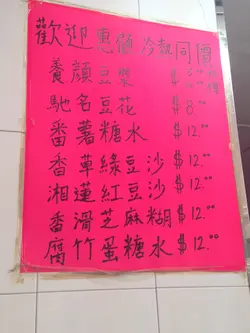 歡迎惠顧 冷熱同價
養顏豆漿 $
馳名豆花 $8.⁰⁰
番薯糖水 $12.⁰⁰
香草綠豆沙 $12.⁰⁰
湘蓮紅豆沙 $12.⁰⁰
香滑芝麻糊 $12.⁰⁰
腐竹蛋糖水 $12.⁰⁰